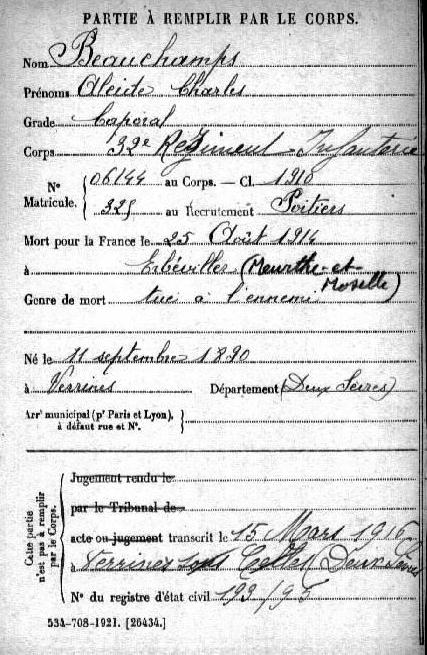 PARTIE À REMPLIR PAR LE CORPS.
Nom Beauchamps
Prénoms Alcide Charles
Grade Caporal
Corps 32e Régiment Infanterie
N° Matricule. 06144 au Corps. — Cl. 1910
325 au Recrutement Poitiers
Mort pour la France le 25 Août 1914
à Erbéviller (Meurthe-et-Moselle)
Genre de mort tué à l'ennemi
Né le 11 septembre 1890
à Verrines Département (Deux Sèvres)
Arrt municipal (pr Paris et Lyon), à défaut rue et N°.
Cette partie n'est pas à remplir par le Corps.
Jugement rendu le
par le Tribunal de
acte ou jugement transcrit le 15 Mars 1916
à Verrines sous Celles (Deux Sèvres
N° du registre d'état civil 199/95
534-708-1921. [26434.]